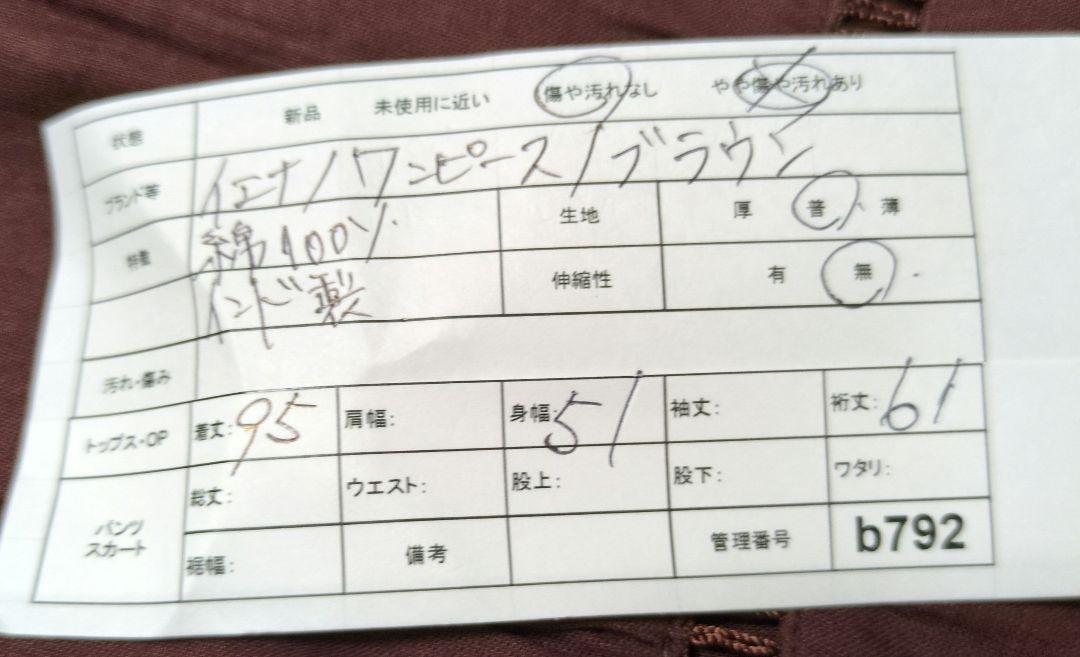 状態 新品 未使用に近い 傷や汚れなし やや傷や汚れあり
ブランド等 イエナ/ワンピース/ブラウン
特徴 綿100% 生地 厚 普 薄
インド製 伸縮性 有 無
汚れ・傷み
トップス・OP 着丈:95 肩幅: 身幅:51 袖丈: 裄丈:61
パンツ スカート 総丈: ウエスト: 股上: 股下: ワタリ:
裾幅: 備考 管理番号 b792